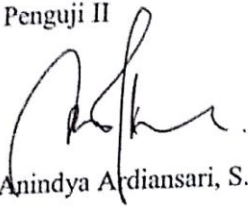 Penguji II
Anindya Ardiansari, S.